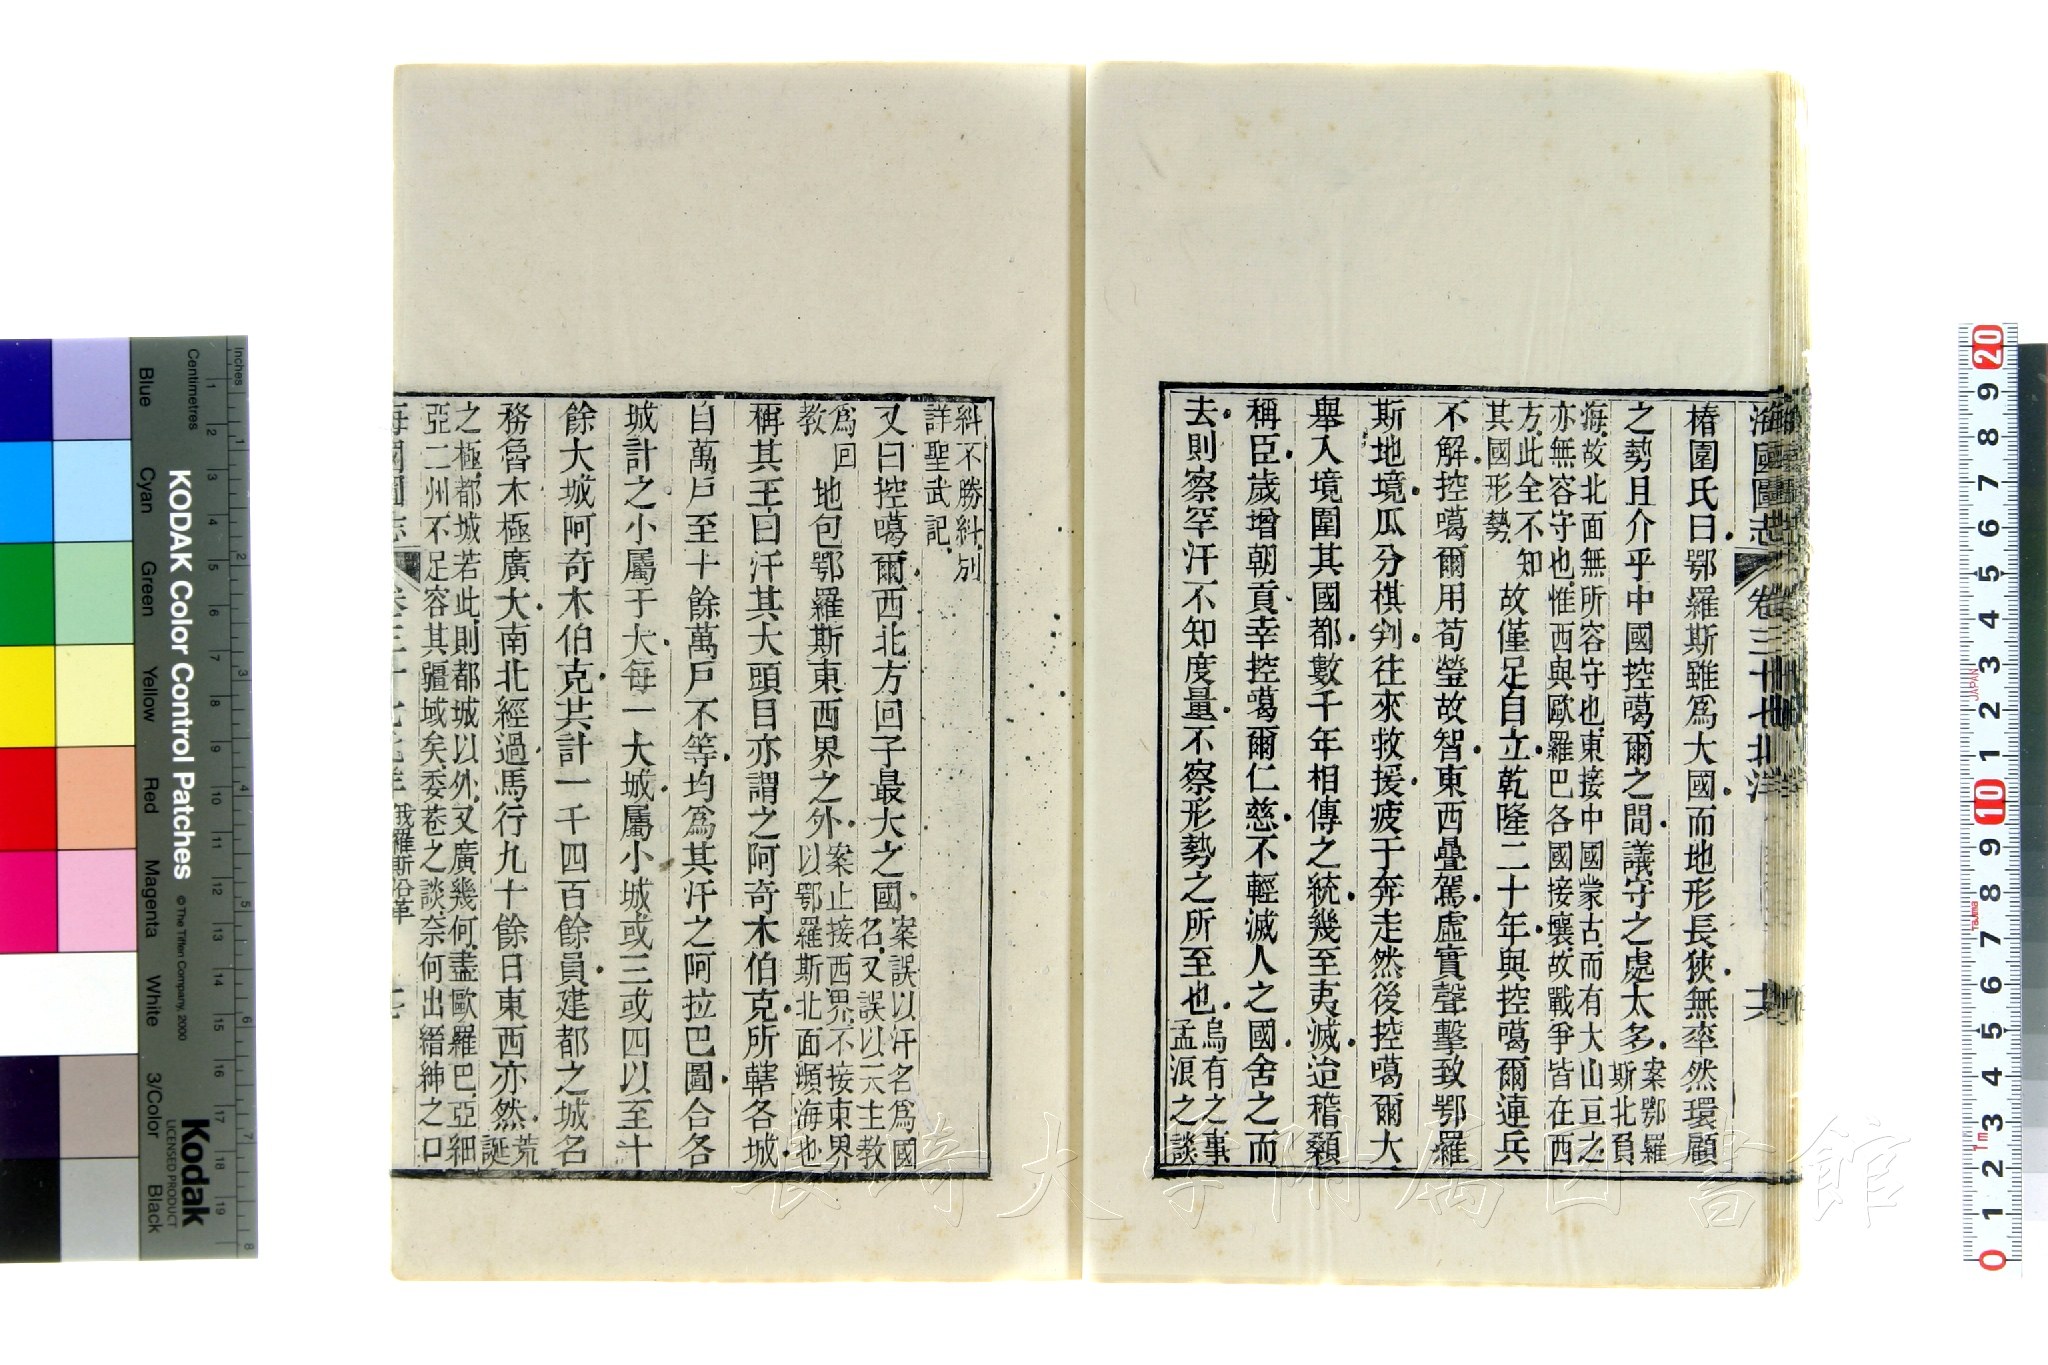 海國圖志 卷三十七 北洋
椿園氏曰鄂羅斯雖爲大國而地形長狹無率然環顧
之勢且介乎中國控噶爾之間議守之處太多案鄂羅斯北負
海故北面無所容守也東接中國蒙古而有大山亘之
亦無容守也惟西與歐羅巴各國接壤故戰爭皆在西
方此全不知其國形勢故僅足自立乾隆二十年與控噶爾連兵
不解控噶爾用荀瑩故智東西疊駕虛實聲擊致鄂羅
斯地境瓜分棋判往來救援疲于奔走然後控噶爾大
舉入境圍其國都數千年相傳之統幾至夷滅迨稽顙
稱臣歲增朝貢幸控噶爾仁慈不輕滅人之國舍之而
去則察罕汗不知度量不察形勢之所至也烏有之事孟浪之談
糾不勝糾別
詳聖武記
又曰控噶爾西北方回子最大之國案誤以汗名爲國名又誤以天主教
爲回教地包鄂羅斯東西界之外案止接西界不接東界以鄂羅斯北面瀕海也
稱其王曰汗其大頭目亦謂之阿奇木伯克所轄各城
自萬戶至十餘萬戶不等均爲其汗之阿拉巴圖合各
城計之小屬于大每一大城屬小城或三或四以至十
餘大城阿奇木伯克共計一千四百餘員建都之城名
務魯木極廣大南北經過馬行九十餘日東西亦然荒誕
之極都城若此則都城以外又廣幾何盡歐羅巴亞細
亞二州不足容其疆域矣委巷之談奈何出縉紳之口
海國圖志 卷三十七 北洋 俄羅斯沿革
KODAK Color Control Patches
© The Tiffen Company, 2000
Kodak
LICENSED PRODUCT
Inches
Centimetres
Blue
Cyan
Green
Yellow
Red
Magenta
White
3/Color
Black
長崎大学附属図書館